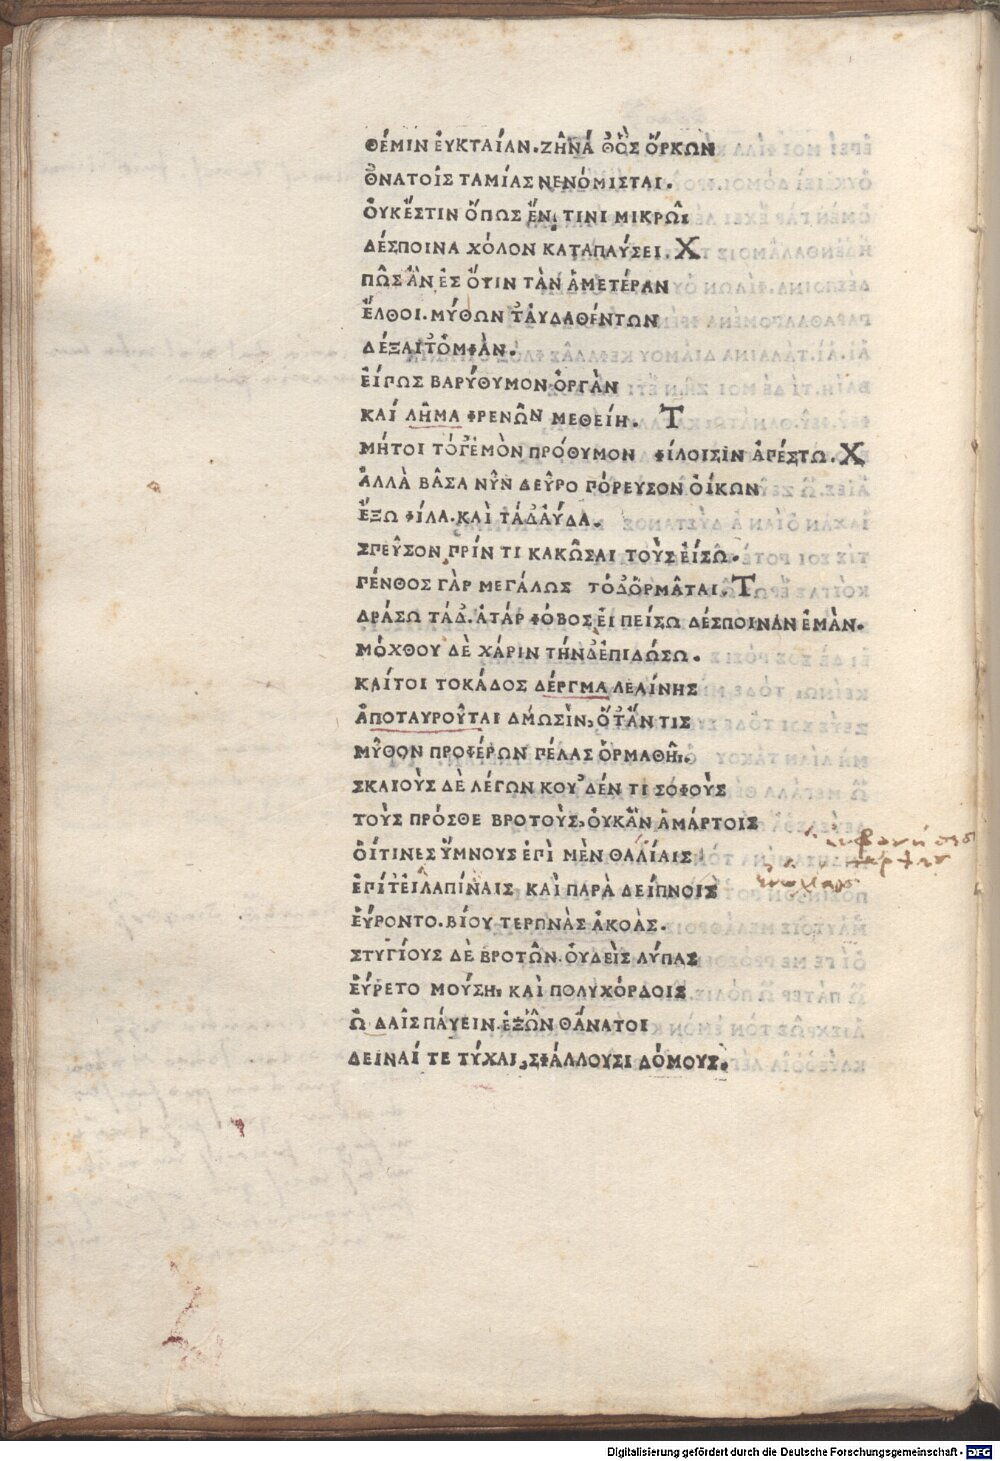 ΘΈΜΙΝ ἘΥΚΤΑΊΑΝ. ΖΗ͂ΝΆ ΘὋΣ ὍΡΚΩΝ
ΘΝΑΤΟΙ͂Σ ΤΑΜΊΑΣ ΝΕΝΌΜΙΣΤΑΙ.
ὈΥΚΈΣΤΙΝ ὍΠΩΣ ἜΝ, ΤΙΝΙ ΜΙΚΡΩ͂Ι
ΔΈΣΠΟΙΝΑ ΧΌΛΟΝ ΚΑΤΑΠΑΎΣΕΙ. Χ
ΠΩ͂Σ ἊΝ ἘΣ ὌΨΙΝ ΤᾺΝ ἉΜΕΤΈΡΑΝ
ἜΛΘΟΙ. ΜΎΘΩΝ ΤἈΥΔΑΘΈΝΤΩΝ
ΔΈΞΑΙΤὈΜΦᾺΝ.
ἘΊΠΩΣ ΒΑΡΎΘΥΜΟΝ ὈΡΓᾺΝ
ΚΑΊ ΛΗ͂ΜΑ ΦΡΕΝΩ͂Ν ΜΕΘΕΊΗ. Τ
ΜΉΤΟΙ ΤΌΓΕΜῸΝ ΠΡΌΘΥΜΟΝ ΦΊΛΟΙΣΙΝ ἈΠΈΣΤΩ. Χ
ἈΛΛᾺ ΒΑ͂ΣΑ ΝΥ͂Ν ΔΕΥ͂ΡΟ ΠΌΡΕΥΣΟΝ ὈΊΚΩΝ
ἜΞΩ ΦΊΛΑ. ΚΑῚ ΤΆΔἈΎΔΑ.
ΣΠΕΥ͂ΣΟΝ ΠΡΊΝ ΤΙ ΚΑΚΩ͂ΣΑΙ ΤΟῪΣ ἘΊΣΩ.
ΠΈΝΘΟΣ ΓᾺΡ ΜΕΓΆΛΩΣ ΤΌΔὉΡΜΑ͂ΤΑΙ. Τ
ΔΡΆΣΩ ΤΆΔ. ἈΤᾺΡ ΦΌΒΟΣ ἘΙ ΠΕΊΣΩ ΔΈΣΠΟΙΝΑΝ ἘΜᾺΝ.
ΜΌΧΘΟΥ ΔῈ ΧΆΡΙΝ ΤΉΝΔἘΠΙΔΏΣΩ.
ΚΑΊΤΟΙ ΤΟΚΆΔΟΣ ΔΈΡΓΜΑ ΛΕΑΊΝΗΣ
ἈΠΟΤΑΥΡΟΥ͂ΤΑΙ ΔΜΩΣῚΝ, ὍΤἊΝ ΤΙΣ
ΜΥ͂ΘΟΝ ΠΡΟΦΈΡΩΝ ΠΈΛΑΣ ὉΡΜΑΘΗ͂Ι.
ΣΚΑΙΟῪΣ ΔῈ ΛΈΓΩΝ ΚΟΥ᾽ΔΈΝ ΤΙ ΣΟΦΟῪΣ
ΤΟῪΣ ΠΡΌΣΘΕ ΒΡΟΤΟῪΣ, ὈΥΚἊΝ ἉΜΆΡΤΟΙΣ
ὍΙΤΙΝΕΣ ὝΜΝΟΥΣ ἘΠῚ ΜῈΝ ΘΑΛΊΑΙΣ
ἘΠΊΤἘΙΛΑΠΊΝΑΙΣ ΚΑῚ ΠΑΡᾺ ΔΕΊΠΝΟΙΣ
ἙΎΡΟΝΤΟ. ΒΊΟΥ ΤΕΡΠΝᾺΣ ἈΚΟΆΣ.
ΣΤΥΓΊΟΥΣ ΔῈ ΒΡΟΤΩ͂Ν. ὈΥΔΕῚΣ ΛΎΠΑΣ
ἙΎΡΕΤΟ ΜΟΎΣΗΙ ΚΑῚ ΠΟΛΥΧΌΡΔΟΙΣ
ὨΔΑΙ͂Σ ΠΑΎΕΙΝ. ἘΞὯΝ ΘΆΝΑΤΟΙ
ΔΕΙΝΑΊ ΤΕ ΤΎΧΑΙ, ΣΦΆΛΛΟΥΣΙ ΔΌΜΟΥΣ.
Digitalisierung gefördert durch die Deutsche Forschungsgemeinschaft - DFG